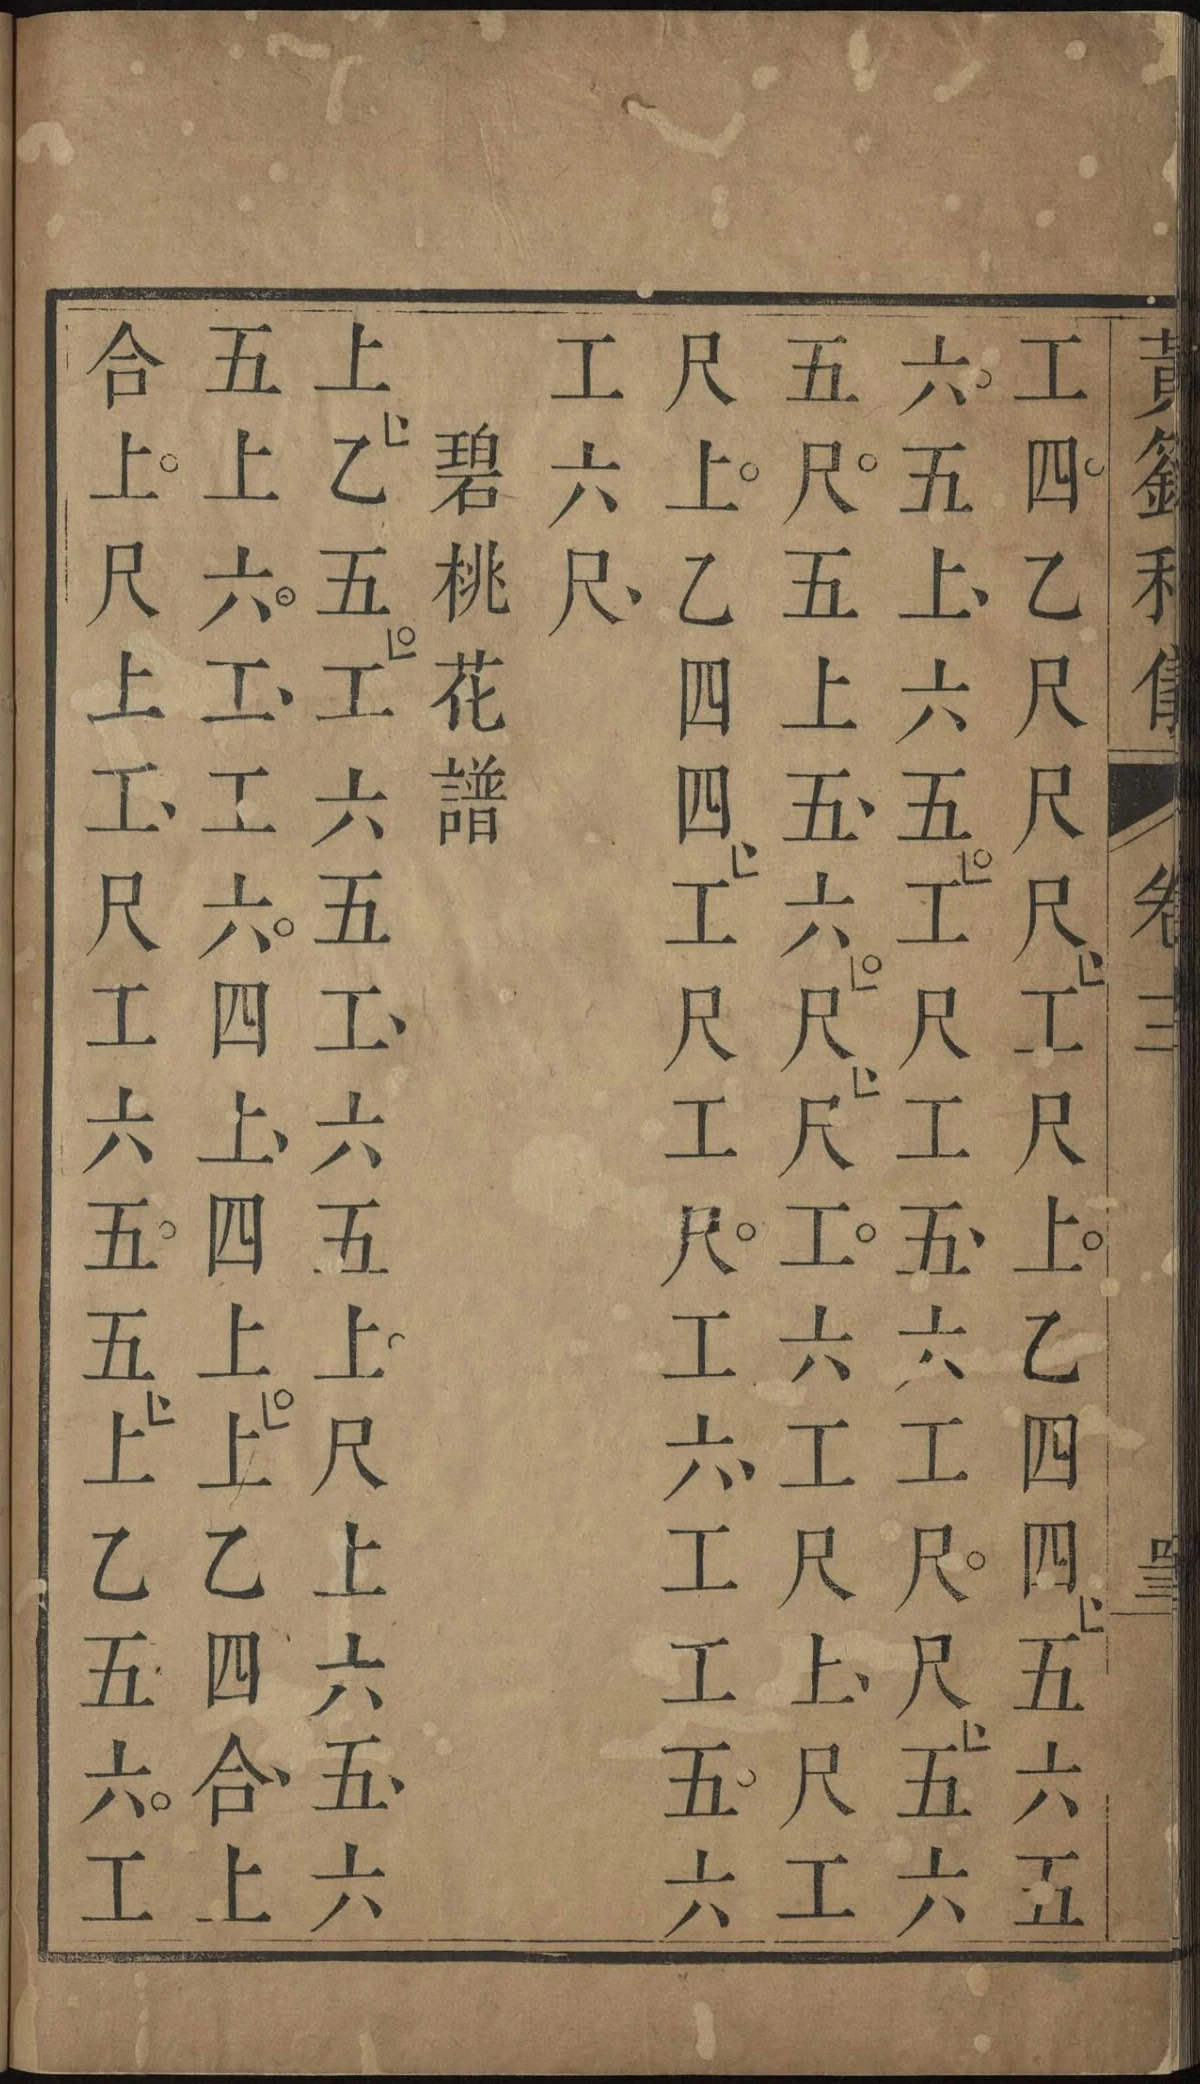 工四乙尺尺尺工尺上乙四四五六五
六五上六五工尺工五六工尺尺五六
五尺五上五六尺尺工六工尺上尺工
尺上乙四四工尺工尺工六工工五六
工六尺
碧桃花譜
上乙五工六五工六五上尺上六五六
五上六工工六四上四上上乙四合上
合上尺上工尺工六五五上乙五六工